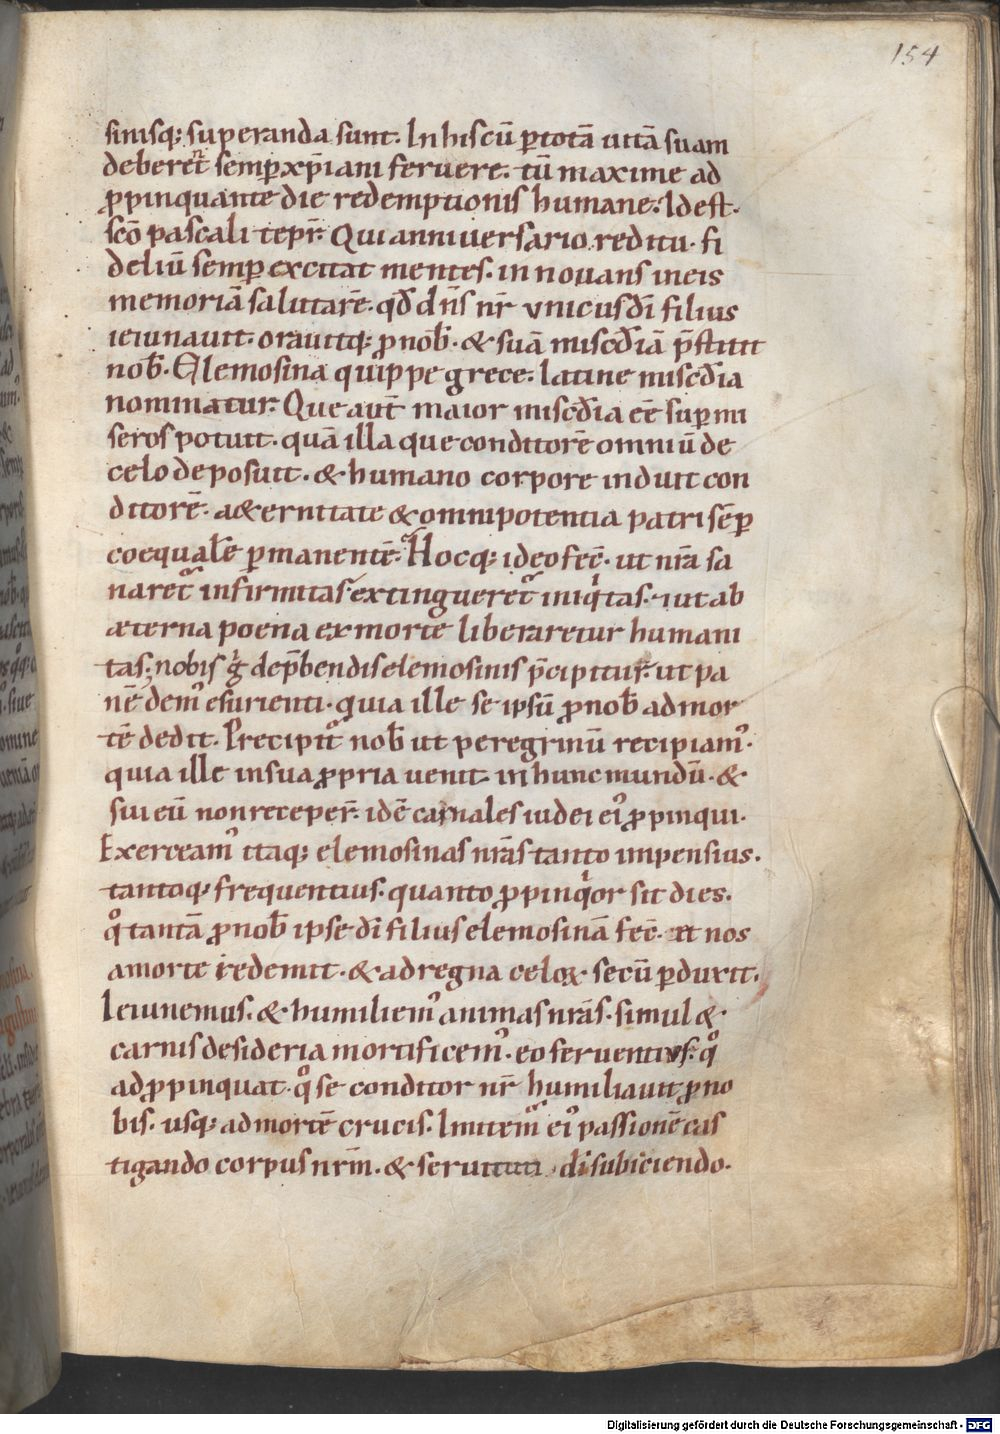 154
sinisq; superanda sunt. In his cū ꝑ totā uitā suam
deberet semꝑ xp̄iani feruere. tū maxime ad
ꝓpinquante die redemptionis humane. Id est.
sc̄o pascali tēpr̄. Qui anniuersario reditu. fi
deliū semꝑ excitat mentes. innouans in eis
memoriā salutarē. qđ dn̄s nr̄ vnicus dī filius
ieiunauit. orauitq; ꝓ nob̄. & suā misc̄diā p̄stitit
nob̄. Elemosina quippe grece. latine misc̄dia
nominatur. Que aut̄ maior misc̄dia eē suꝑ mi
seros potuit. quā illa que conditorē omniū de
celo deposuit. & humano corpore induit con
ditorē. a&ernitate & omnipotentia patri sēꝑ
coequalē ꝑmanentē. Hocq; ideo fec̄. ut nr̄a sa
naret᷑ infirmitas. extingueret᷑ iniqͥtas. ut ab
æterna poena ex morte liberaretur humani
tas. nobis gͥ dep̄hendis elemosinis p̄cipitur. ut pa
nē demꝰ esurienti. quia ille se ipsū ꝓ nob̄ ad mor
tē dedit. Precipit᷑ nob̄ ut peregrinū recipiamꝰ.
quia ille in sua ꝓpria uenit in hunc mundū. &
sui eū non receper̄. idē carnales iudei eiꝰ ꝓpinqui.
Exerceamꝰ itaq; elemosinas nr̄as tanto impensius.
tantoq; frequentius. quanto ꝓpinqͥor sit dies.
qͦ tantā ꝓ nob̄ ipse dī filius elemosinā fec̄. et nos
a morte redemit. & ad regna celoꝝ secū ꝑduxit.
Ieiunemus. & humiliemꝰ animas nr̄as. simul &
carnis desideria mortificemꝰ. eo feruentius. qͦ
adꝓpinquat. qͦ se conditor nr̄ humiliauit ꝓ no
bis. usq; ad mortē crucis. Imitem᷑ eiꝰ passionē cas
tigando corpus nr̄m. & seruituti dī subiciendo.
Digitalisierung gefördert durch die Deutsche Forschungsgemeinschaft - DFG